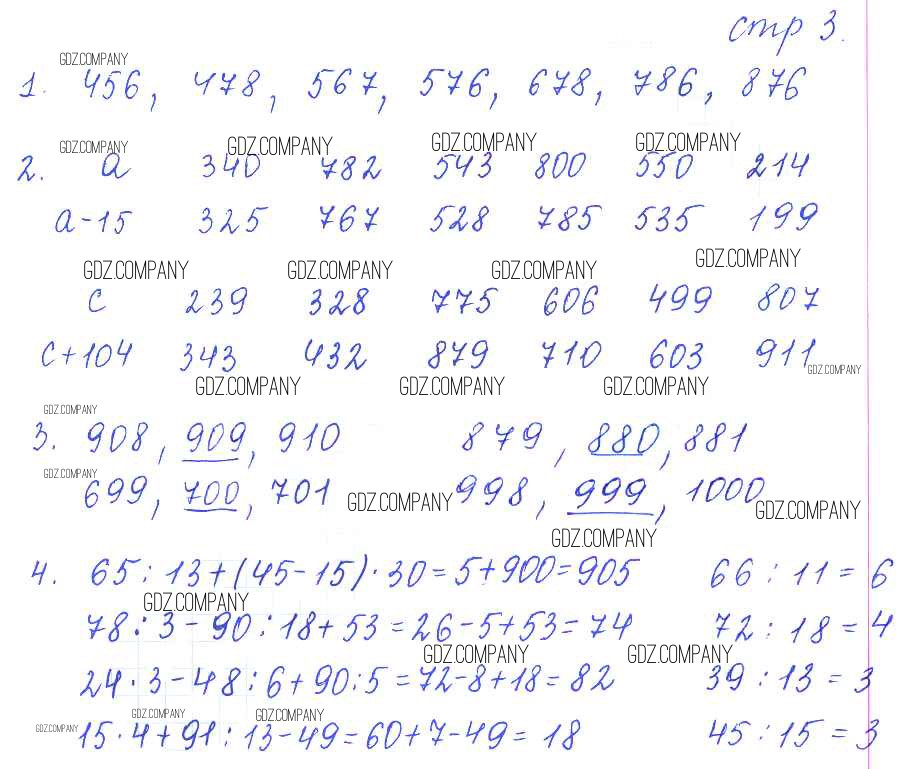 стр 3.
GDZ.COMPANY
1. 456, 478, 567, 576, 678, 786, 876
GDZ.COMPANY GDZ.COMPANY GDZ.COMPANY GDZ.COMPANY
2. a 340 782 543 800 550 214
a-15 325 767 528 785 535 199
GDZ.COMPANY GDZ.COMPANY GDZ.COMPANY GDZ.COMPANY
c 239 328 775 606 499 807
c+104 343 432 879 710 603 911
GDZ.COMPANY GDZ.COMPANY GDZ.COMPANY GDZ.COMPANY
GDZ.COMPANY
3. 908, 909, 910 879, 880, 881
GDZ.COMPANY
699, 700, 701 GDZ.COMPANY 998, 999, 1000 GDZ.COMPANY
GDZ.COMPANY
4. 65:13+(45-15)·30=5+900=905 66:11=6
GDZ.COMPANY
78:3-90:18+53=26-5+53=74 72:18=4
GDZ.COMPANY GDZ.COMPANY
24·3-48:6+90:5=72-8+18=82 39:13=3
GDZ.COMPANY GDZ.COMPANY GDZ.COMPANY
15·4+91:13-49=60+7-49=18 45:15=3